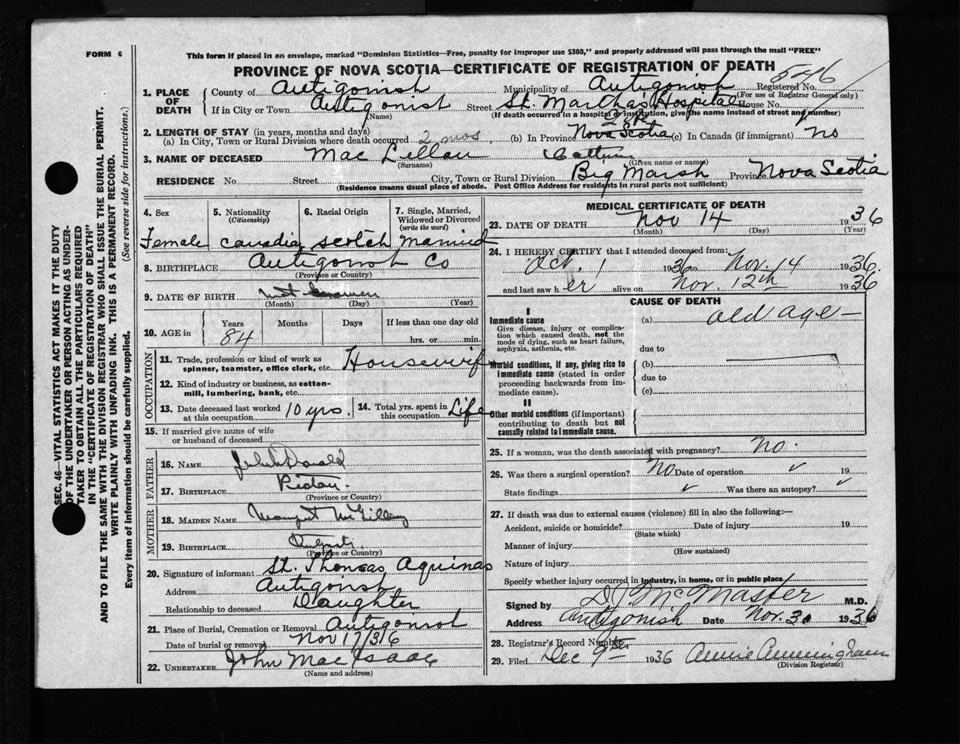 FORM 6
This form if placed in an envelope, marked "Dominion Statistics—Free, penalty for improper use $300," and properly addressed will pass through the mail "FREE"
PROVINCE OF NOVA SCOTIA—CERTIFICATE OF REGISTRATION OF DEATH
546
1. PLACE OF DEATH
County of Antigonish Municipality of Antigonish Registered No.
(For use of Registrar General only)
If in City or Town Antigonish Street St. Martha's Hospital House No.
(Name) (If death occurred in a hospital or institution, give the name instead of street and number)
2. LENGTH OF STAY (in years, months and days)
(a) In City, Town or Rural Division where death occurred 2 mos (b) In Province Nova Scotia (c) In Canada (if immigrant) no
3. NAME OF DECEASED Mac Lellan
(Surname) (Given name or names)
RESIDENCE No. Street City, Town or Rural Division Big Marsh Province Nova Scotia
(Residence means usual place of abode. Post Office Address for residents in rural parts not sufficient)
4. Sex 5. Nationality (Citizenship) 6. Racial Origin 7. Single, Married, Widowed or Divorced (write the word)
Female Canadia Scotch Married
8. BIRTHPLACE Antigonish Co
(Province or Country)
9. DATE OF BIRTH not known
(Month) (Day) (Year)
10. AGE in Years Months Days If less than one day old
84 hrs. or min.
OCCUPATION
11. Trade, profession or kind of work as spinner, teamster, office clerk, etc. Housewife
12. Kind of industry or business, as cotton-mill, lumbering, bank, etc.
13. Date deceased last worked at this occupation 10 yrs. 14. Total yrs. spent in this occupation Life
15. If married give name of wife or husband of deceased
FATHER
16. NAME John Donald
17. BIRTHPLACE
(Province or Country)
MOTHER
18. MAIDEN NAME Margaret McGillivray
19. BIRTHPLACE
(Province or Country)
20. Signature of informant St. Thomas Aquinas
Address Antigonish
Relationship to deceased Daughter
21. Place of Burial, Cremation or Removal Antigonish
Date of burial or removal Nov 17/36
22. UNDERTAKER John MacIsaac
(Name and address)
MEDICAL CERTIFICATE OF DEATH
23. DATE OF DEATH Nov 14 1936
(Month) (Day) (Year)
24. I HEREBY CERTIFY that I attended deceased from:
Oct. 1 1936 to Nov. 14 1936.
and last saw her alive on Nov. 12th 1936
CAUSE OF DEATH
I
Immediate cause (a) old age
Give disease, injury or complication which caused death, not the mode of dying, such as heart failure, asphyxia, asthenia, etc.
due to
Morbid conditions, if any, giving rise to immediate cause (stated in order proceeding backwards from immediate cause).
(b)
due to
(c)
II
Other morbid conditions (if important) contributing to death but not causally related to immediate cause.
25. If a woman, was the death associated with pregnancy? No.
26. Was there a surgical operation? No Date of operation ✓ 19
State findings ✓ Was there an autopsy? ✓
27. If death was due to external causes (violence) fill in also the following:—
Accident, suicide or homicide? Date of injury 19
(State which)
Manner of injury
(How sustained)
Nature of injury
Specify whether injury occurred in industry, in home, or in public place
Signed by D J McMaster M.D.
Address Antigonish Date Nov. 30 1936
28. Registrar's Record Number
29. Filed Dec 9th 1936 Annie Cunningham
(Division Registrar)
SEC. 46—VITAL STATISTICS ACT MAKES IT THE DUTY
OF THE UNDERTAKER OR PERSON ACTING AS UNDERTAKER
TO OBTAIN ALL THE PARTICULARS REQUIRED
IN THE "CERTIFICATE OF REGISTRATION OF DEATH"
AND TO FILE THE SAME WITH THE DIVISION REGISTRAR WHO SHALL ISSUE THE BURIAL PERMIT.
WRITE PLAINLY WITH UNFADING INK. THIS IS A PERMANENT RECORD.
Every item of Information should be carefully supplied. (See reverse side for instructions.)